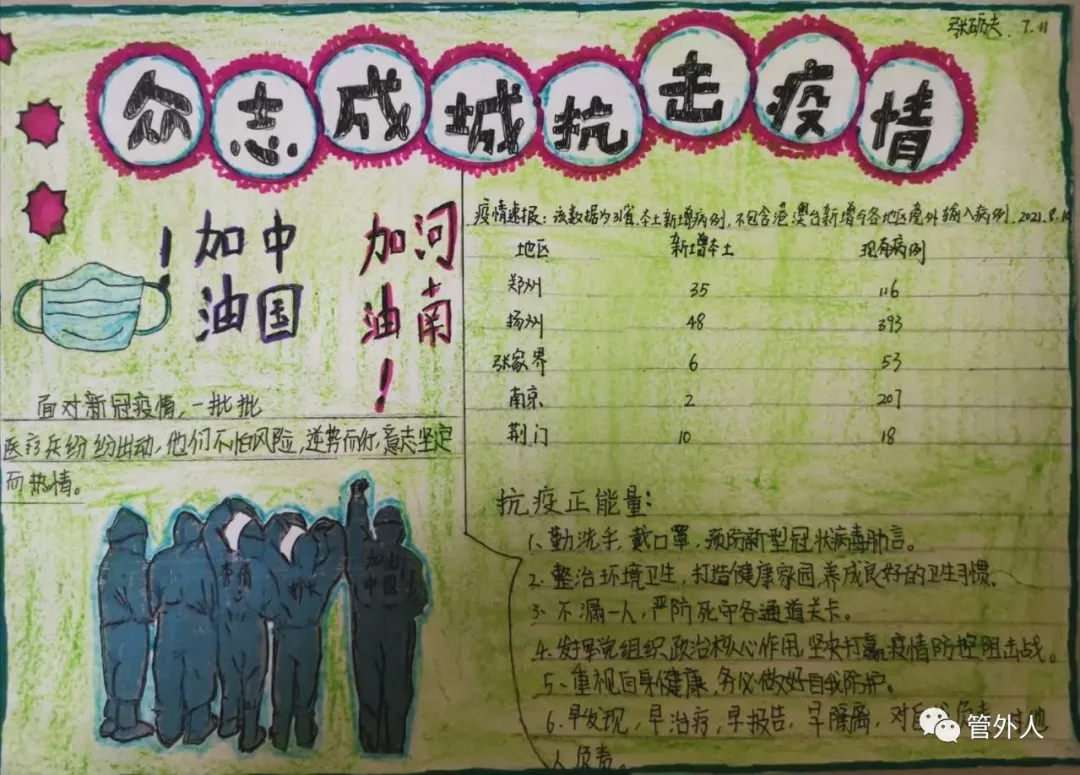 张砺夫 7.11
众志成城抗击疫情
疫情速报：该数据为31省.本土新增病例，不包含港澳台新增本各地区境外输入病例.2021.8.10
地区 新增本土 现有病例
郑州 35 116
扬州 48 393
张家界 6 53
南京 2 207
荆门 10 18
中国
加油！
河南
加油！
面对新冠疫情，一批批
医疗兵纷纷出动，他们不怕风险，逆势而行，意志坚定
而热情。
李倩
加油
中国
抗疫正能量：
1、勤洗手，戴口罩，预防新型冠状病毒肺言。
2、整治环境卫生，打造健康家园，养成良好的卫生习惯。
3、不漏一人，严防死守各通道关卡。
4、发挥党组织政治核心作用，坚决打赢疫情防控阻击战。
5、重视自身健康，务必做好自我防护。
6、早发现，早治疗，早报告，早隔离，对
人负责。
管外人